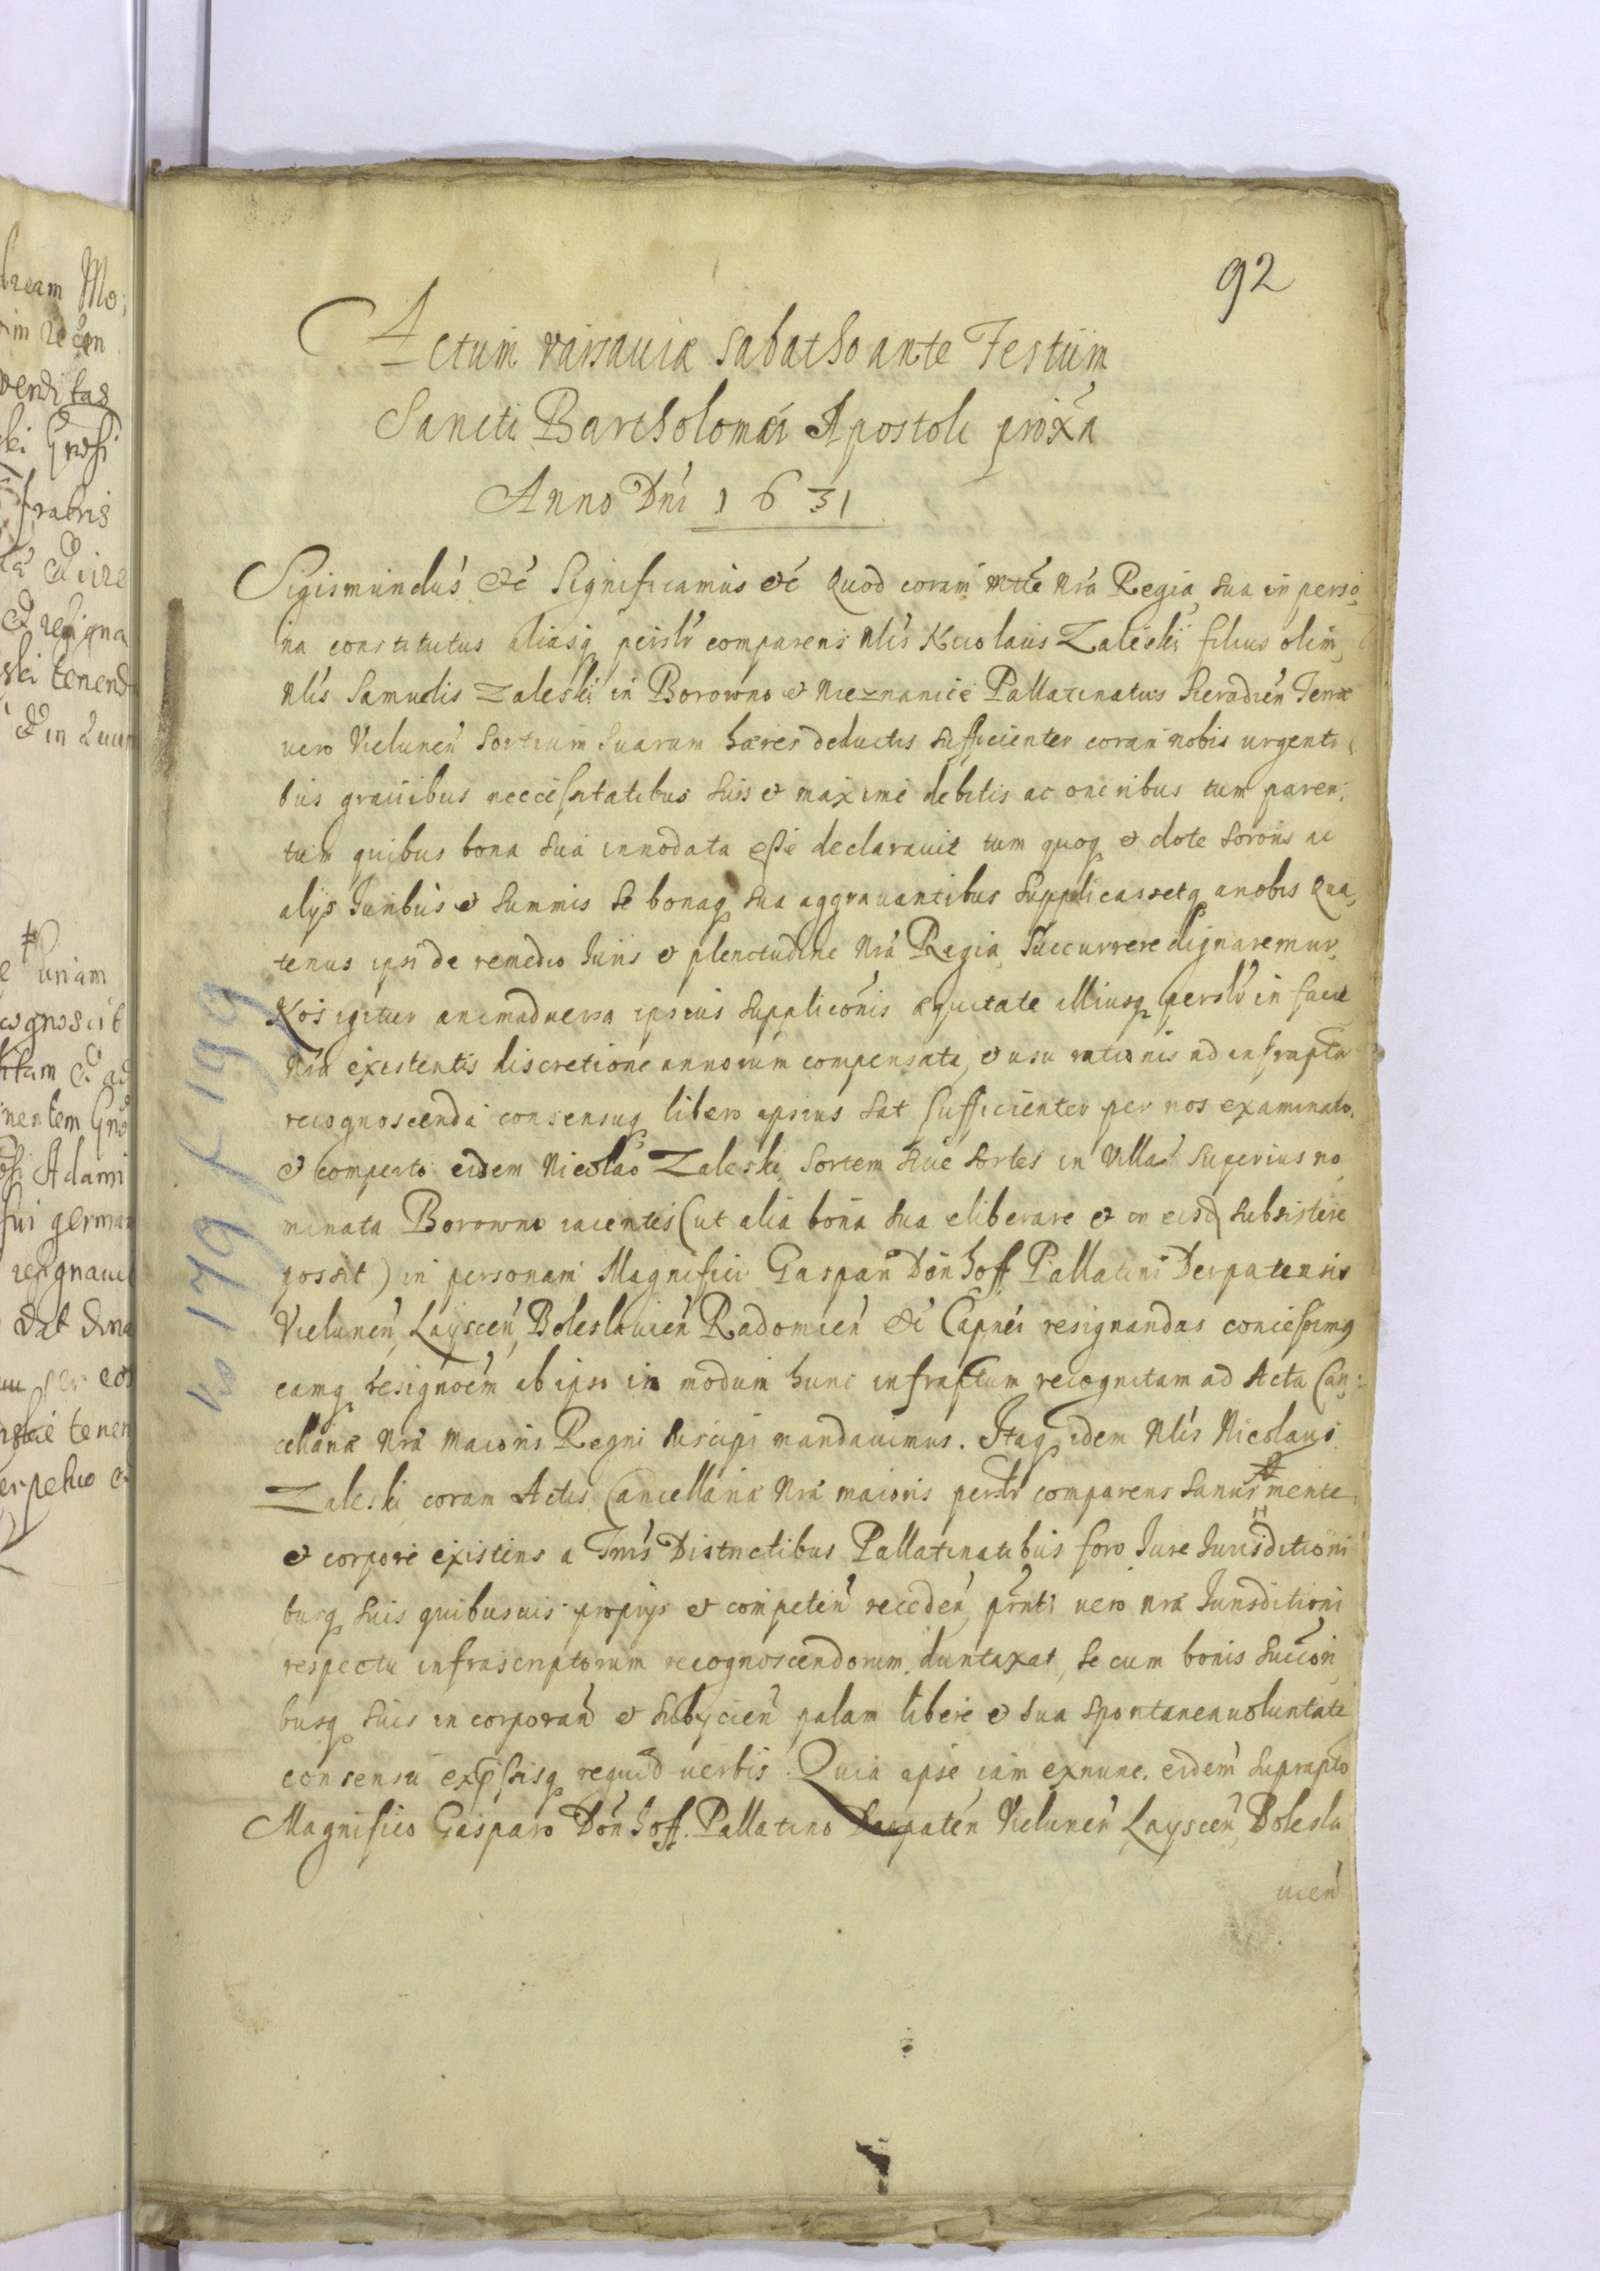 92
Actum varsaviæ Sabatho ante Festum
Sancti Bartholomæi Apostoli proxã
Anno Dni 1631
Sigismundus &c Significamus &c Quod coram Mtte Nra Regia sua in perso
na constitutus aliasq persltr comparens Nlis Nicolaus Zaleski filius olim
Nlis Samuelis Zaleski in Borowno et Nieznanice Pallatinatus Sieradien Terræ
vero Vielunen Sortium Suarum hæres deductis sufficienter coram nobis urgenti
bus gravibus neccessitatibus suis et maxime debitis ac oneribus tum paren
tum quibus bona sua innodata esse declaravit tum quoq et dote sororis ac
alijs Juribus et summis se bonaq sua aggravantibus Supplicassetq a nobis Qua
tenus ipsi de remedio Juris et plenitudine Nra Regia Succurrere dignaremur
Nos igitur animadversa ipsius supplicõnis æquitate illiusq persltr in facie
Nra existentis discretione annorum compensata, et usu rationis ad infrapta
recognoscenda consensuq libero ipsius sat sufficienter per nos examinato
et comperto eidem Nicolao Zaleski Sortem sive sortes in Villa superius no
minata Borowno iacentes (ut alia bona sua eliberare et in eisd subsistere
possit) in personam Magnifici Gaspari Dönhoff Pallatini Derpatensis
Vielunen, Layscen, Boleslavien Radomien &c Capnei resignandas concessimq
eamq resignoem ab ipso in modum hunc infraptum recognitam ad Acta Can
cellariæ Nræ Maioris Regni suscipi mandavimus. Itaq idem Nlis Nicolaus
Zaleski coram Actis Cancellariæ Nræ maioris persltr comparens sanus mente
et corpore existens a Trris Districtibus Pallatinatibus foro Jure Jurisditioni
busq suis quibusvis proprijs et competen receden prnti vero nræ Jurisditioni
respectu infrascriptorum recognoscendorum duntaxat, se cum bonis succon
busq suis incorporan et subijcien palam libere et sua spontanea voluntate
consensu expssisq requid verbis. Quia ipse iam exnunc eidem suprapto
Magnifico Gasparo Dönhoff Pallatino Derpaten Vielunen Layscen Bolesla
vien